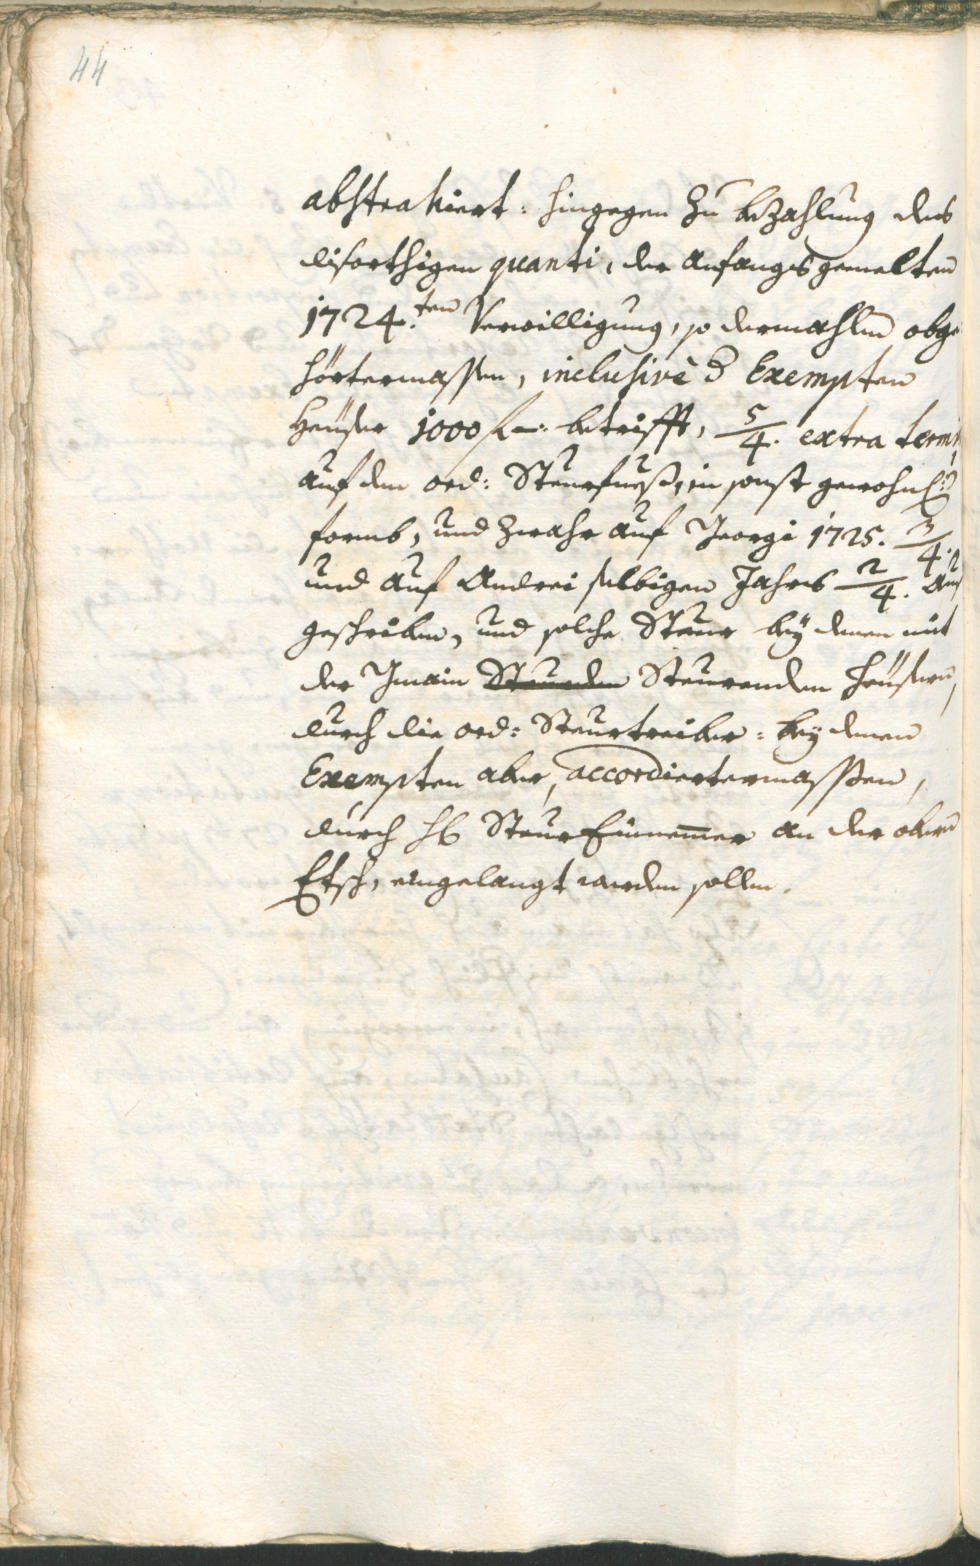 44
abstrahiert: hingegen zu bezahlung des
disorthigen quanti, der anfangs gemelten
1724.ten Verwilligung, so dermahlen obge
hörtermassen, inclusivè d Exempten
Heuser 1000 f betrifft, 5/4. extra termi,
auf den ord: Steurfueß, in sonst gewohnl:
formb, und zwahr auf Georgi 1725. 3/4.
und auf Andrei selbigen Jahrs 2/4. auß
geschriben, und solche Steur bey denen mit
der Gmain Steurden Steurenden heusern,
durch die ord: Steurtreiber: bey denen
Exempten aber, accordiertermassen,
durch H Steur Einnemer an der obern
Etsch, eingelangt werden sollen.